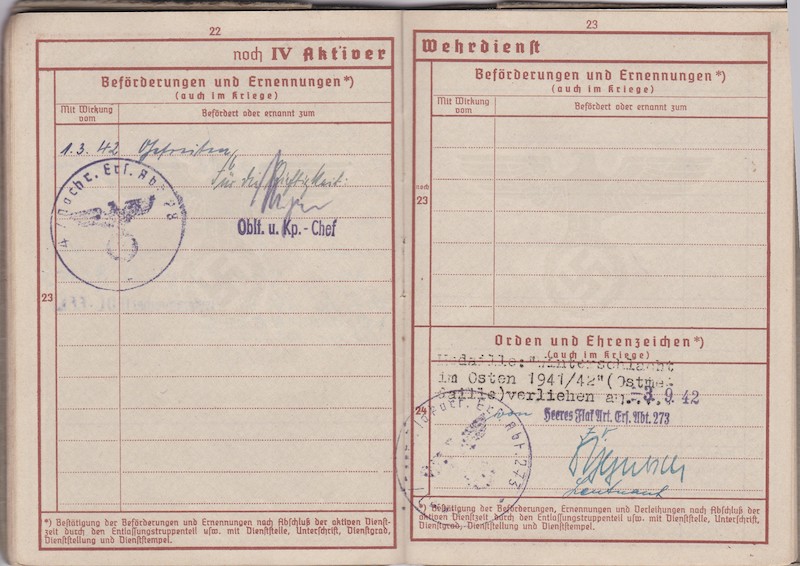 22
noch IV Aktiver
Beförderungen und Ernennungen*)
(auch im Kriege)
Mit Wirkung vom
Befördert oder ernannt zum
1.3.42 Gefreiten
Für die Richtigkeit:
4./Nachr. Ers. Abt. 28
Oblt. u. Kp.-Chef
23
*) Bestätigung der Beförderungen und Ernennungen nach Abschluß der aktiven Dienst-
zeit durch den Entlassungstruppenteil usw. mit Dienststelle, Unterschrift, Dienstgrad,
Dienststellung und Dienststempel.
23
Wehrdienst
Beförderungen und Ernennungen*)
(auch im Kriege)
Mit Wirkung vom
Befördert oder ernannt zum
noch
23
Orden und Ehrenzeichen*)
(auch im Kriege)
Medaille:"Winterschlacht
im Osten 1941/42"(Ostme-
daille)verliehen am
-3. 9. 42
von Heeres Flak Art. Ers. Abt. 273
24
Abt. 273
Leutnant
*) Bestätigung der Beförderungen, Ernennungen und Verleihungen nach Abschluß der
aktiven Dienstzeit durch den Entlassungstruppenteil usw. mit Dienststelle, Unterschrift,
Dienstgrad, Dienststellung und Dienststempel.